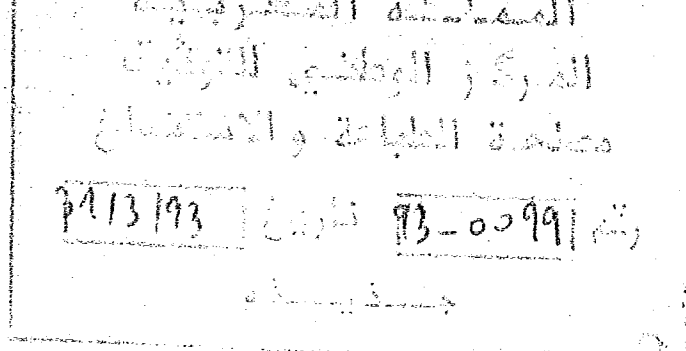 المملكة المغربية
المركز الوطني للتوثيق
مصلحة الطباعة و الاستنساخ
رقم 93-0099 تاريخ 31/3/93